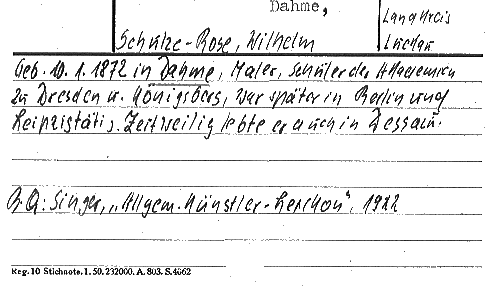 Dahme,
Landkreis
Luckau
Schulze-Rose, Wilhelm
Geb. 10.1.1872 in Dahme, Maler, Schüler der Akademien
zu Dresden u. Königsberg, war später in Berlin und
Leipzig tätig. Zeitweilig lebte er auch in Dessau.
B.Q: Singer, „Allgem. Künstler-Lexikon", 1922
Reg. 10 Stichnote. 1. 50. 232000. A. 803. S. 4662